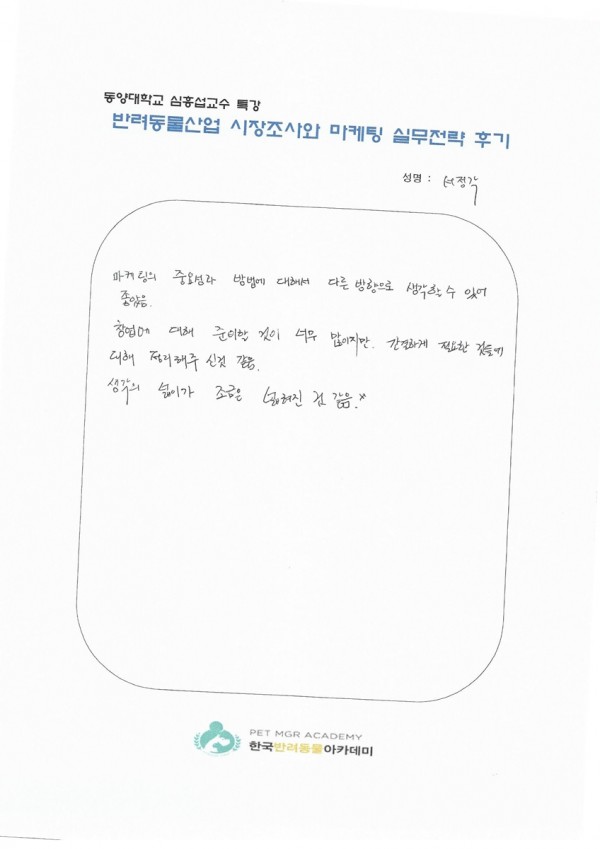 동양대학교 심홍섭교수 특강
반려동물산업 시장조사와 마케팅 실무전략 후기
성명 : 정각
마케팅의 중요성과 방법에 대해서 다른 방향으로 생각할 수 있어
좋았음.
창업에 대해 준비할 것이 너무 많이지만. 간결하게 필요한 것들에
대해 정리해주신것 같음.
생각의 넓이가 조금은 넓혀진 것 같음.
PET MGR ACADEMY
한국반려동물아카데미